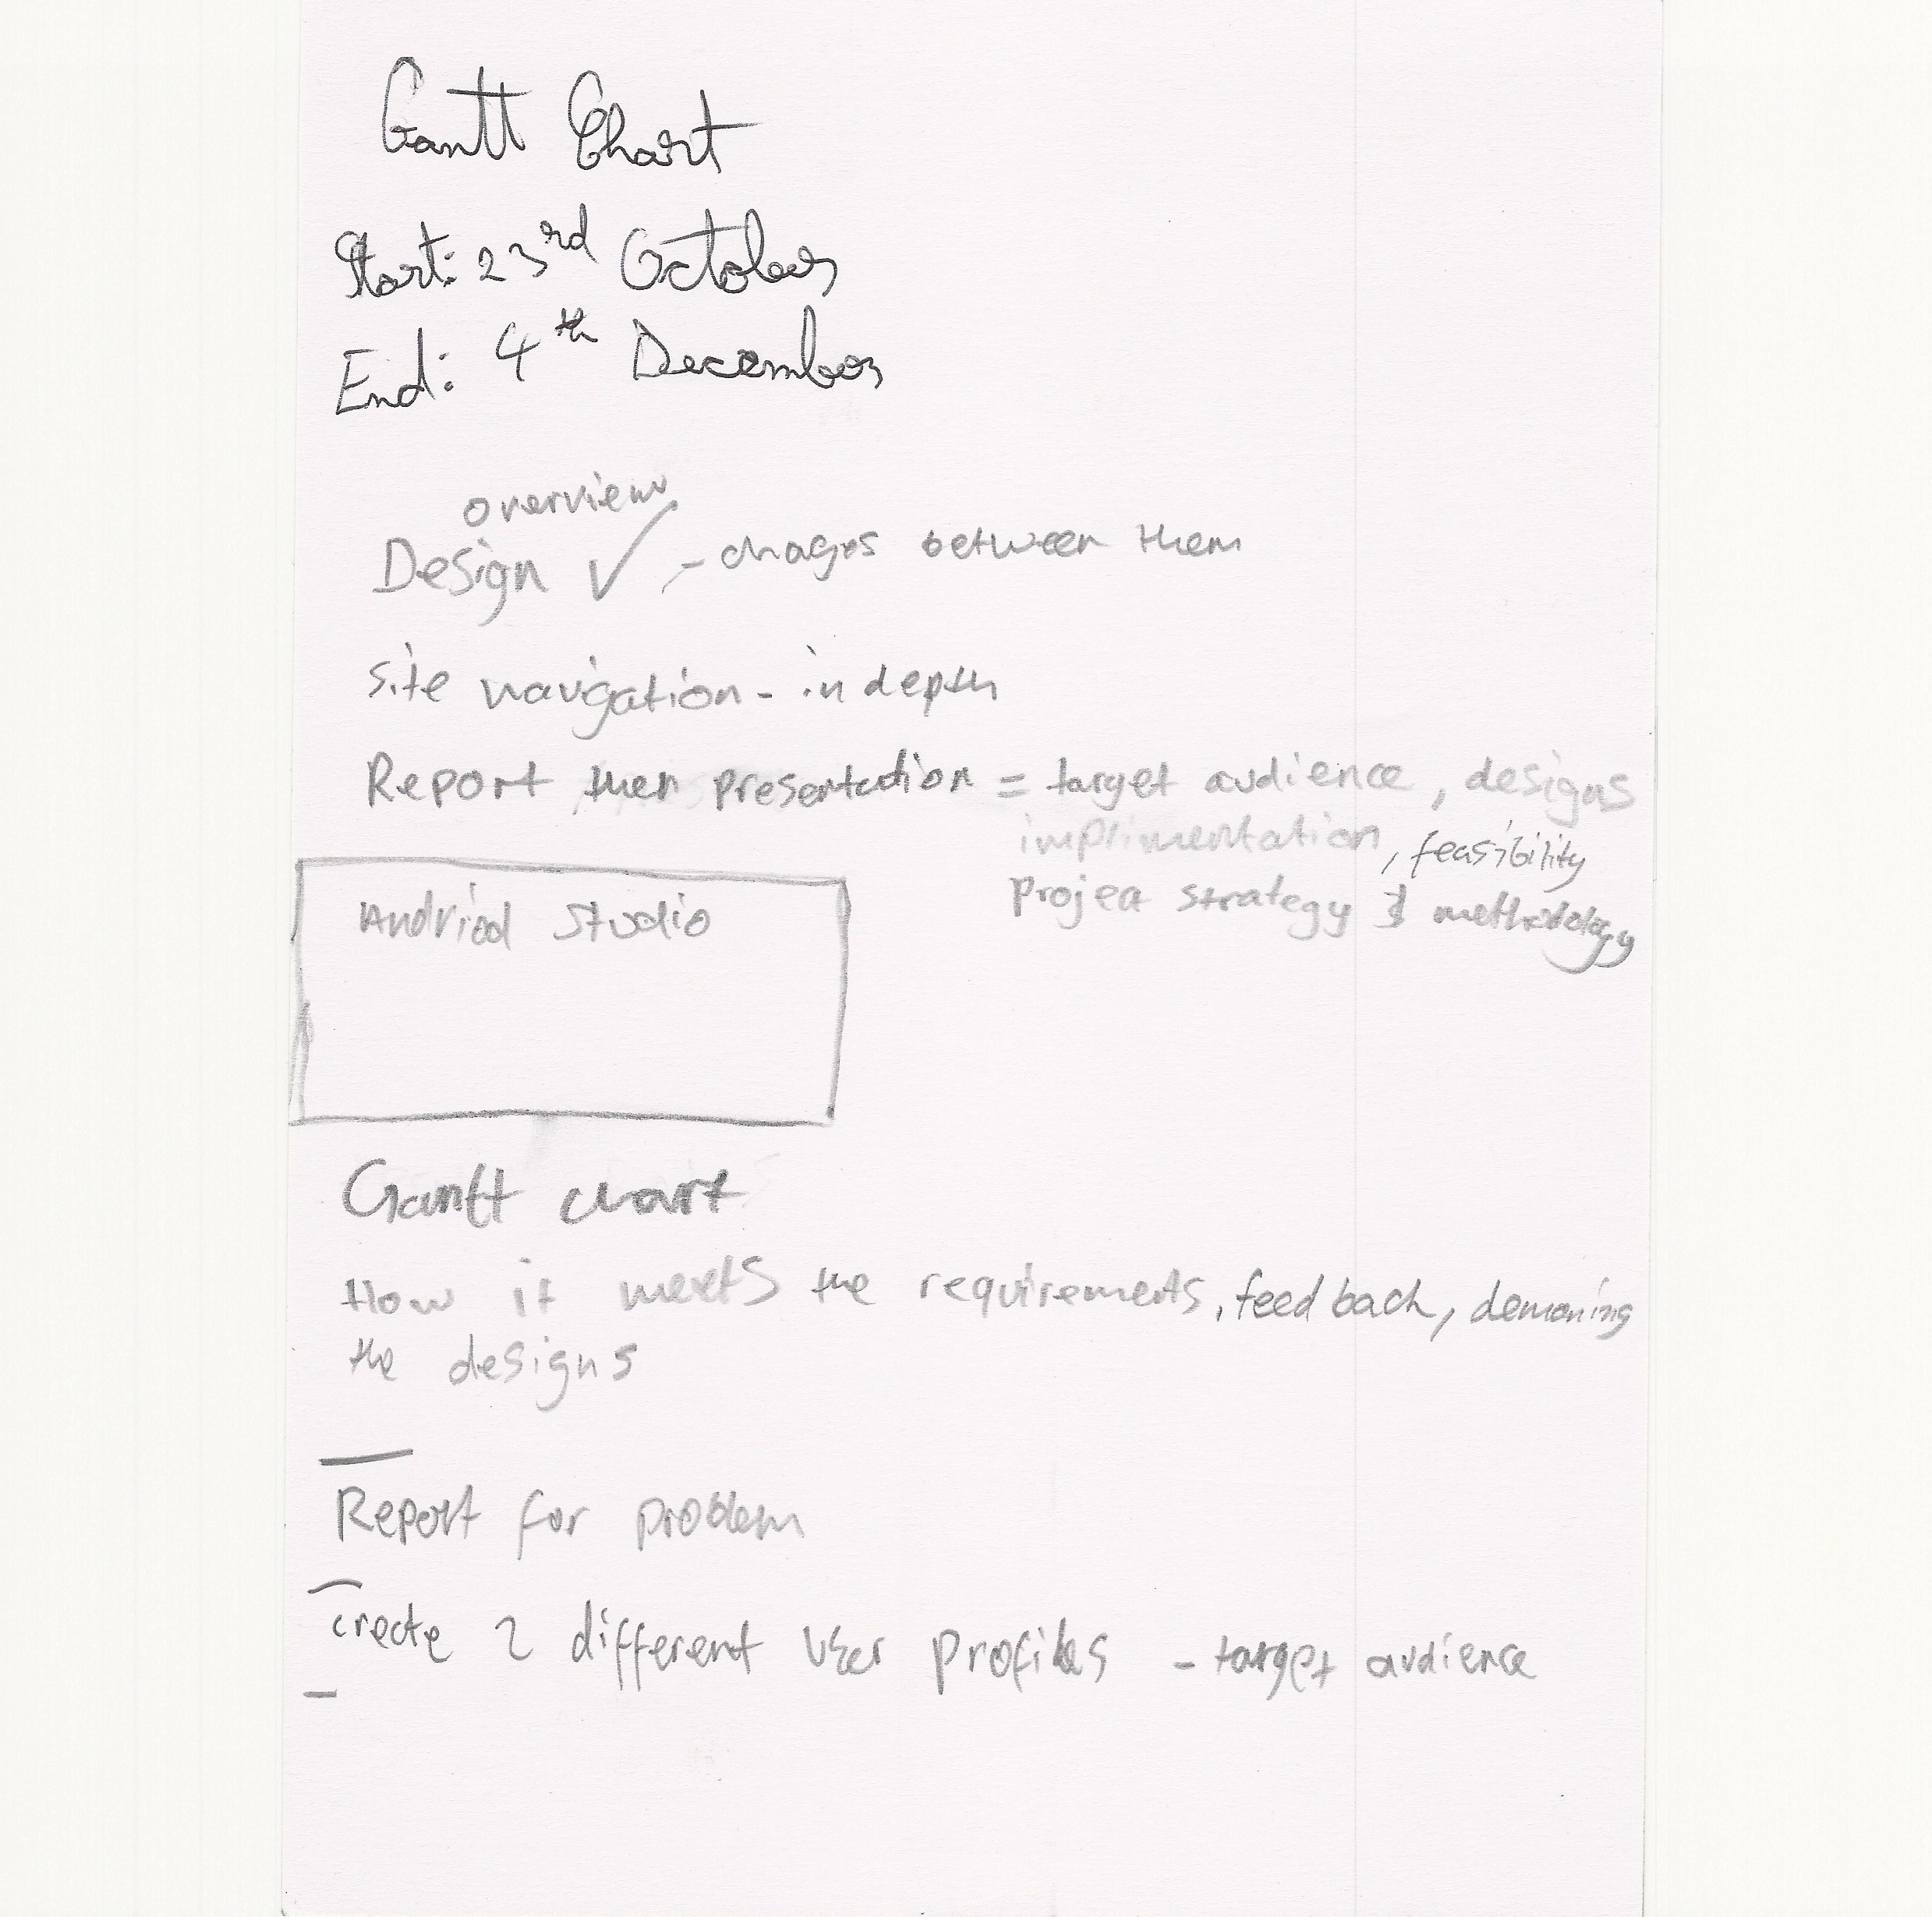 Gantt Chart
Start: 23rd October
End: 4th December
overview
Design ✓ - chages between them
site navigation - in depth
Report then presentation = target audience, designs
implimentation, feasibility
Project strategy & methodology
Andriod Studio
Gantt chart
How it meets the requirements, feedback, demoning
the designs
Report for problem
create 2 different user profiles - target audience